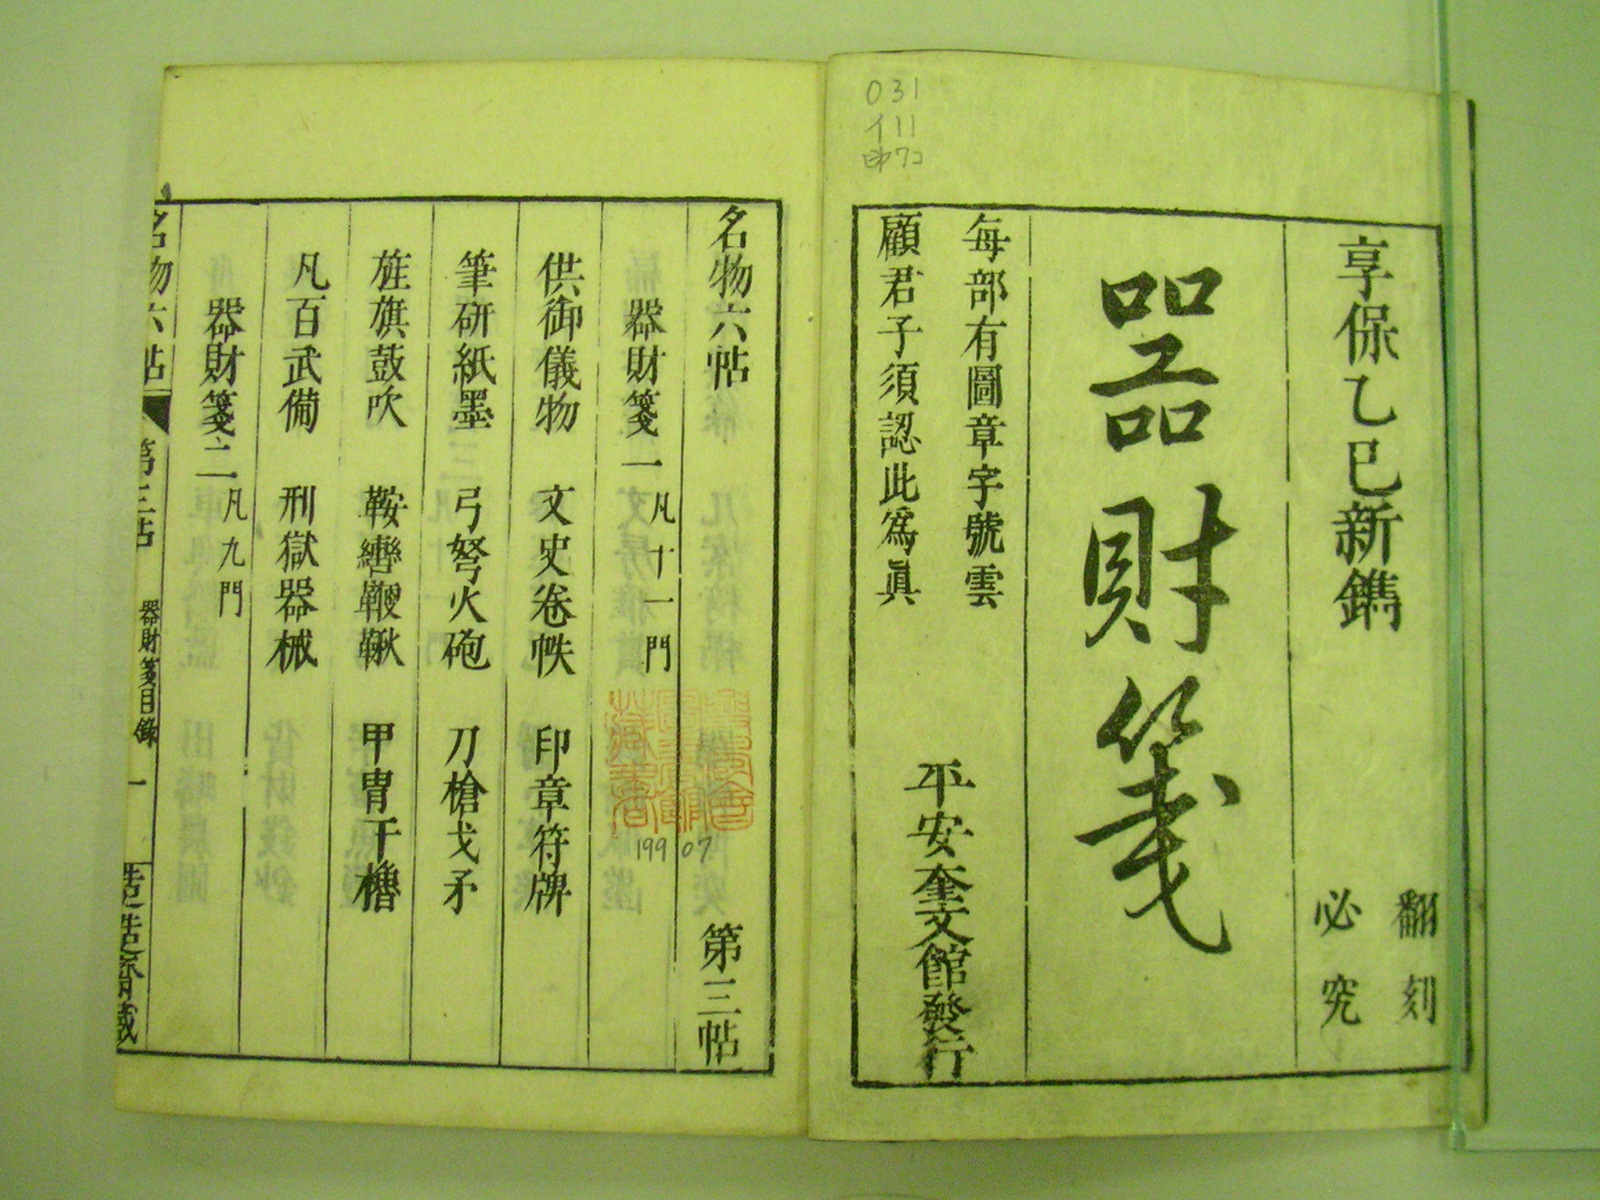 031
イ11
印7コ
享保乙巳新鐫
翻刻
必究
器財箋
每部有圖章字號雲
顧君子須認此爲眞
平安奎文館發行
名物六帖 第三帖
器財箋一 凡十一門
供御儀物 文史卷帙 印章符牌
筆硏紙墨 弓弩火砲 刀槍戈矛
旌旗鼓吹 鞍轡鞭鞦 甲冑干櫓
凡百武備 刑獄器械
器財箋二 凡九門
名物六帖 第三帖 器財箋目錄 一
199 07